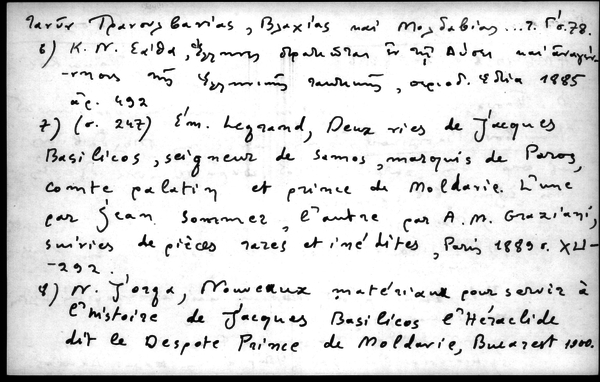 Τρανσυλβανίας, Βλαχίας καί Μολδαβίας ... τ. Γ΄ σ. 78.
6) Κ. Ν. Σάθα, Ἕλληνες στρατιῶται ἐν τῇ Δύσει καί ἀναγέν-
-νησις τῆς Ἑλληνικῆς τακτικῆς, περιοδ. Ἑστία 1885
ἀρ. 492
7) (σ. 247) Ém. Legrand, Deux vies de Jacques
Basilicos, seigneur de Samos, marquis de Paros,
comte palatin et prince de Moldavie. L'une
par Jean Sommer, l'autre par A. M. Graziani,
suivies de pièces rares et inédites, Paris 1889 σ. XLI-
-292.
8) N. Jorga, Nouveaux matériaux pour servir à
l'histoire de Jacques Basilicos l'Héraclide
dit le Despote Prince de Moldavie, Bucarest 1900.